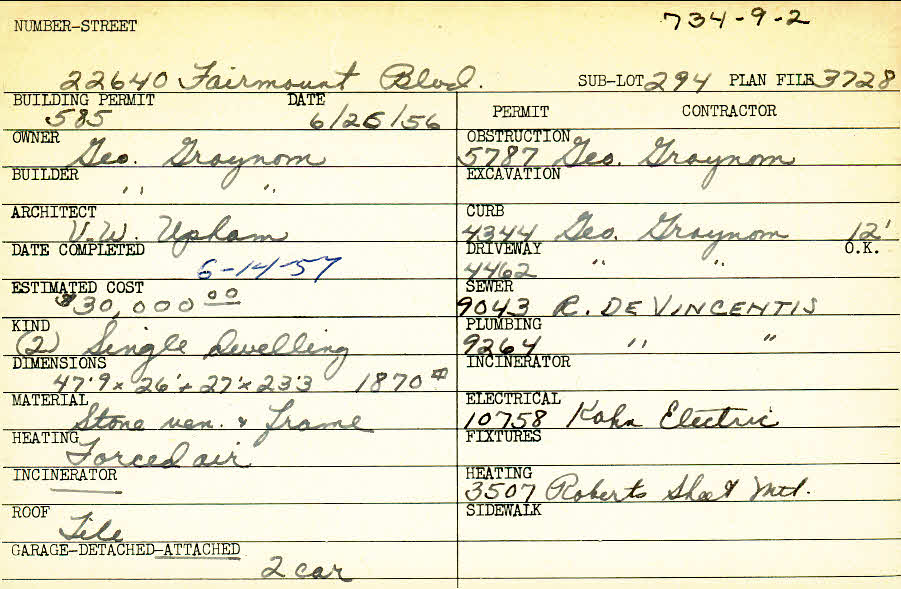 734-9-2
NUMBER-STREET
22640 Fairmount Blvd. SUB-LOT 294 PLAN FILE 3728
BUILDING PERMIT DATE
585 6/26/56
OWNER
Geo. Graynom
BUILDER
" "
ARCHITECT
V.W. Upham
DATE COMPLETED
6-14-57
ESTIMATED COST
$30,000 00
KIND
(2) Single Dwelling
DIMENSIONS
47'9 x 26' + 27' x 23'3 1870 #
MATERIAL
Stone ven. & Frame
HEATING
Forced air
INCINERATOR
ROOF
Tile
GARAGE-DETACHED-ATTACHED
2 car
PERMIT CONTRACTOR
OBSTRUCTION
5787 Geo. Graynom
EXCAVATION
CURB
4344 Geo. Graynom 12'
DRIVEWAY O.K.
4462 " "
SEWER
9043 R. DE VINCENTIS
PLUMBING
9264 " "
INCINERATOR
ELECTRICAL
10758 Kahn Electric
FIXTURES
HEATING
3507 Roberts Sheet Mtl.
SIDEWALK